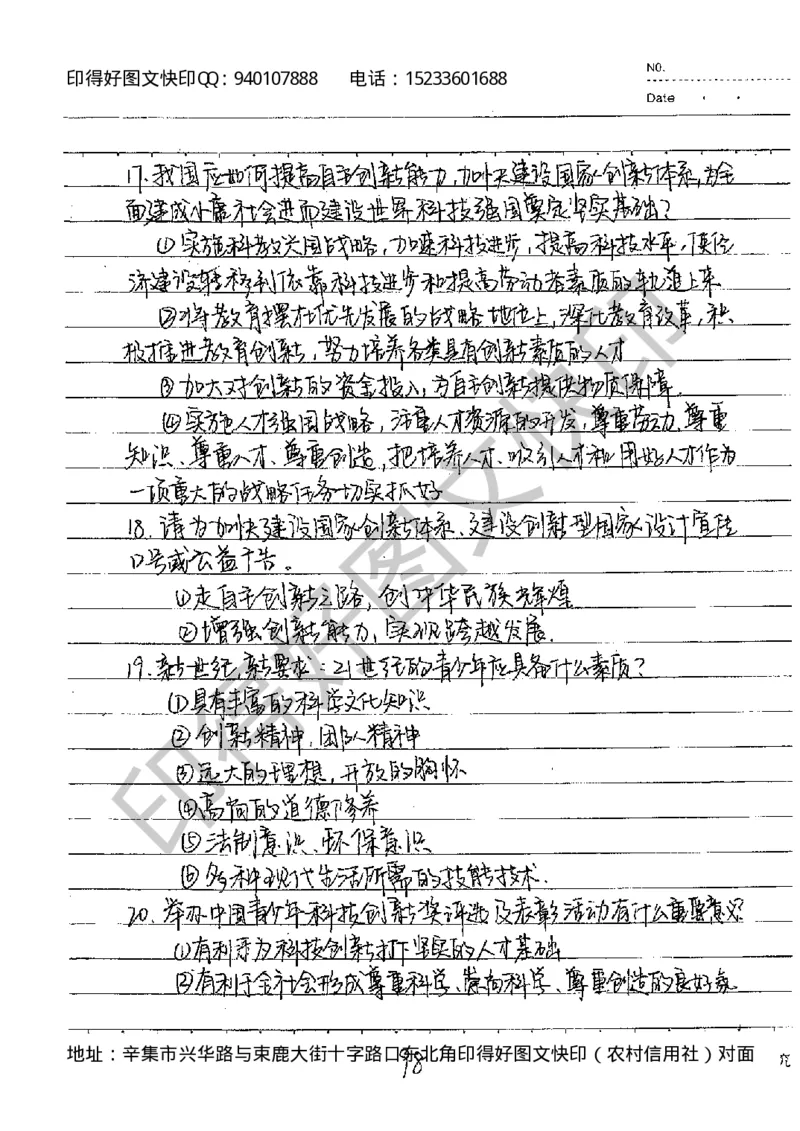 印得好图文快印QQ：940107888 电话：15233601688
NO.
Date
17.我国应如何提高自主创新能力,加快建设国家创新体系,为全
面建成小康社会进而建设世界科技强国奠定坚实基础?
①实施科教兴国战略,加速科技进步,提高科技水平,使经
济建设转移到依靠科技进步和提高劳动者素质的轨道上来
②将教育摆在优先发展的战略地位上,深化教育改革,积
极推进教育创新,努力培养各类具有创新素质的人才
③加大对创新的资金投入,为自主创新提供物质保障.
④实施人才强国战略,注重人才资源的开发,尊重劳动、尊重
知识、尊重人才、尊重创造,把培养人才、吸引人才和用好人才作为
一项重大的战略任务切实抓好
18.请为加快建设国家创新体系、建设创新型国家设计宣传
口号或公益广告。
①走自主创新之路,创中华民族辉煌
②增强创新能力,实现跨越发展.
19.新世纪,新要求:21世纪的青少年应具备什么素质?
①具有丰富的科学文化知识
②创新精神,团队精神
③远大的理想,开放的胸怀
④高尚的道德修养
⑤法制意识、环保意识
⑥多种现代生活所需的技能技术.
20.举办中国青少年科技创新奖评选及表彰活动有什么重要意义?
①有利于为科技创新打下坚实的人才基础
②有利于全社会形成尊重科学、崇尚科学、尊重创造的良好氛
地址：辛集市兴华路与束鹿大街十字路口东北角印得好图文快印（农村信用社）对面
98
印得好图文快印